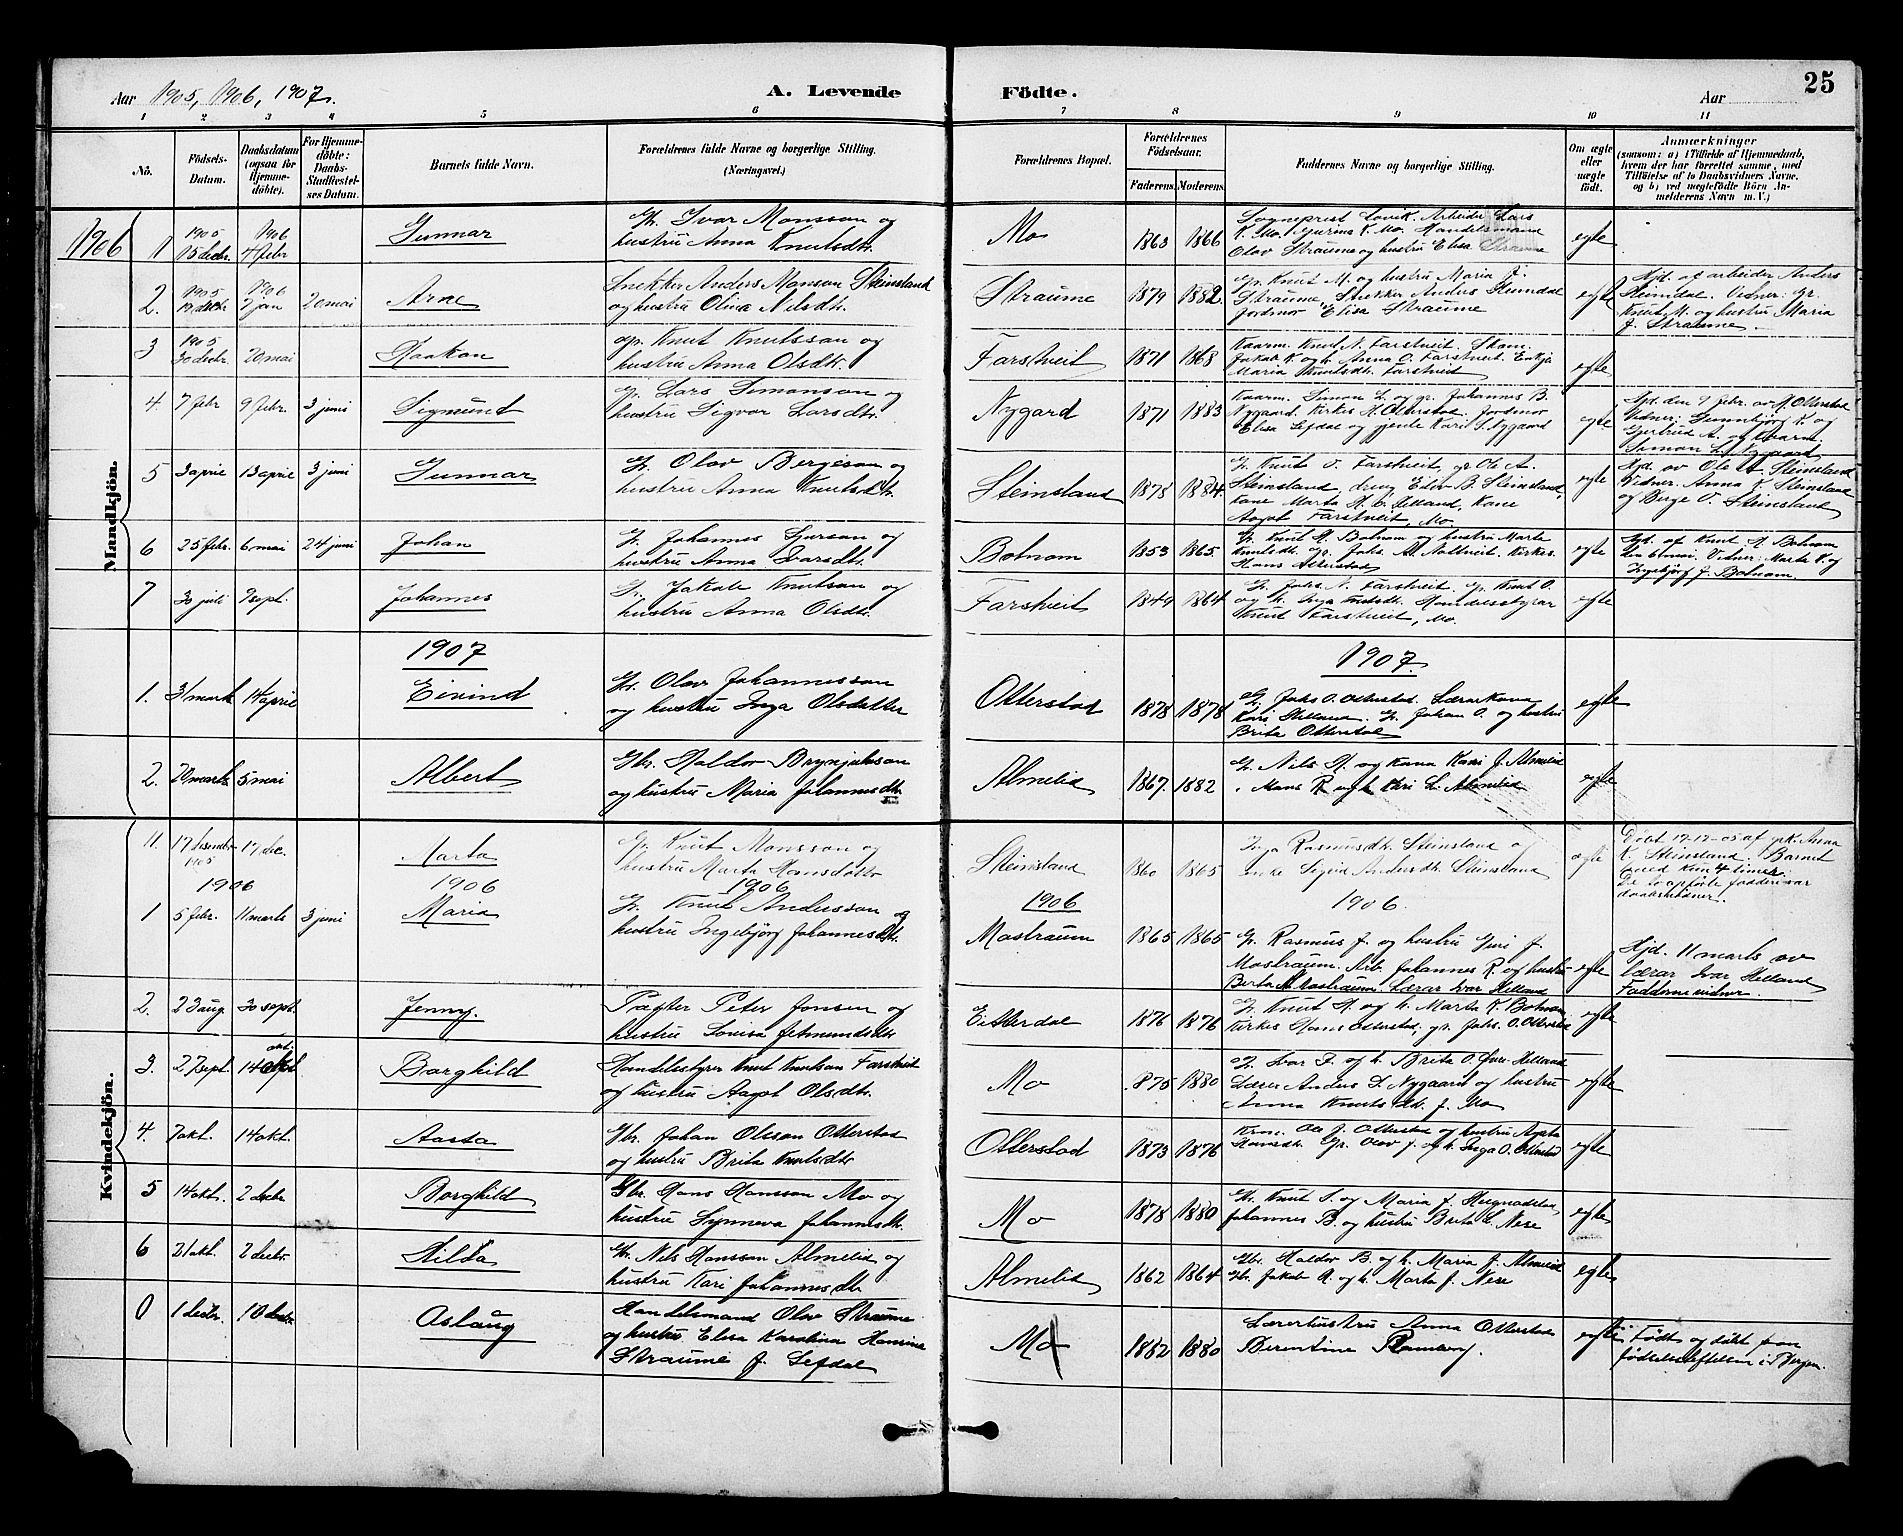 Aar 1905, 1906, 1907.
A. Levende Födte.
Aar
25
1 2 3 4 5 6 7 8 9 10 11
No.
Födsels-Datum.
Daabsdatum (ogsaa for Hjemmedöbte).
For Hjemmedöbte: Daabs-Stadfæstelses Datum.
Barnets fulde Navn.
Forældrenes fulde Navne og borgerlige Stilling. (Næringsvei.)
Forældrenes Bopæl.
Forældrenes Födselsaar.
Faderens. Moderens.
Faddernes Navne og borgerlige Stilling.
Om ægte eller uægte født.
Anmærkninger
(saasom: a) i Tilfælde af Hjemmedaab, hvem der har forrettet samme, med Tilföielse af to Daabsvidners Navne, og b) ved uægtefödte Börn Anmelderens Navn m. V.)
Mandkjön.
1906
1 1905 15 decbr. 1906 4 febr Gunnar Gr. Ivar Monsson og
hustru Anna Knutsdtr. Mo 1863 1866 Sogneprest Lavik. Arbeider Lars
K. Mo. Gurina K. Mo. Handelsmann
Olav Straume og hustru Elisa Straume egte
2. 1905 19 decbr 1906 7 jan 20 mai Arne Snekker Anders Monsen Steinsland
og hustru Olina Nilsdtr. Straume 1879 1882. Gr. Knut M. og hustru Maria J.
Straume, Snekker Anders Steindal
Jordmor Elisa Straume egte Hjd. af arbeider Anders
Steindal. Vidner: Gr.
Knut M. og hustru Maria
J. Straume.
3 1905 30 decbr. 20 mai Haakon Gr. Knut Knutsson og
hustru Anna Olsdtr. Farstveit 1871 1868 Kaarm. Knut N. Farstveit.
Jakob K. og h. Anna O. Farstveit. Enkja
Maria Knutsdtr. Farstveit egte
4. 7 febr 9 febr. 3 juni Sigmund Gr. Lars Simonson og
hustru Sigvor Larsdtr. Nygard 1871 1883 Kaarm. Simon L. og gr. Johannes B.
Nygaard. Kirkes. H. Otterstad. Jordmor
Elisa Sefdal og gjente Kari S. Nygaard egte Hjd. den 9 febr. av H. Otterstad
Vidner: Gunnbjørg K. og
Gjertrud A. og Kaarm.
Simon L. Nygaard
5 3 april 13 april 3 juni Gunnar Gr. Olav Bergeson og
hustru Anna Knutsdtr. Steinsland 1878 1884. Gr. Knut O. Farstveit, gr. Ole A.
Steinsland, dreng Eilev B. Steinsland,
kone Marta H. Helland, Kone
Aagot Farstveit, Mo. egte Hjd. av Ole A. Steinsland
Vidner: Anna K. Steinsland
og Berge O. Steinsland
6 25 febr. 6 mai 24 juni Johan Gr. Johannes Gurson og
hustru Anna Ivarsdtr. Botnom 1853 1865. Gr. Knut H. Botnom og hustru Marta
Knutsdtr. Gr. Johs. Kirkes.
Hans Otterstad egte Hjd. af Knut H. Botnom
den 6 mai. Vidner: Marta K. og
Ingebjørg J. Botnom.
7 30 juli 2 sept. Johannes Gr. Jakob Knutson og
hustru Anna Olsdtr. Farstveit 1849 1864 Gr. Johs. N. Farstveit. Gr. Knut O.
og h. Inga Knutsdtr. Handelsstyrar
Knut Farstveit, Mo. egte
1907 1907.
1. 31 mark 14 april Eivind Gr. Olav Johannesson
og hustru Inga Olsdotter Otterstad 1878 1878 Gr. Johs O. Otterstad. Lærarkona
Kari Helland. Gr. Johan O. og hustru
Brita Otterstad egte
2. 20 marts 5 mai Albert Gbr. Haldor Brynjulvson
og hustru Maria Johannesdtr Almelid 1867. 1882 Gr. Nils H. og kona Kari J. Almelid
Mons R. og h. Kari L. Almelid egte
Kvindekjön.
11. 17 desember 1905 17 dec. Marta Gr. Knut Monsson og
hustru Marta Hansdotter Steinsland 1860 1865 Inga Rasmusdtr. Steinsland og
enke Sigrid Andersdtr. Steinsland egte Døbt 17-12-05 af grk. Anna
K. Steinsland. Barnet
leved kun 4 timer.
De to opførte faddere var
daabsvidner.
1906 1906 1906 1906 1906.
1 5 febr. 11 marts 3 juni Maria Gr. Knut Andersson og
hustru Ingebjörg Johannesdtr. Mostraum 1865 1865 Gr. Rasmus J. og hustru Guri J.
Mostraum. Arb. Johannes R. og hustru
Berta M. Mostraum. Lærar Ivar Helland egte Hjd. 11 marts av
lærar Ivar Helland
Fadderne vidner.
2. 23 aug. 30 sept. Jenny. Pagter Peter Jonsen og
hustru Lovisa Jetmundsdtr Eitterdal 1876 1876 Gr. Knut H. og h. Marta K. Botnom,
Kirkes. Hans Otterstad, gr. Johs. O. Otterstad egte
3. 27 sept. 14 okt. Borghild Handelsstyrer Knut Knutson Farstveit
og hustru Aagot Olsdtr. Mo 1875 1880 Gr. Ivar F. og h. Brita O. Øvre-Helland
Lærer Anders L. Nygaard og hustru
Anna Knutsdtr. f. Mo egte
4. 7 okt. 14 okt. Aasta Gbr. Johan Olsson Otterstad
og hustru Brita Knutsdtr Otterstad 1873 1876 Ole J. Otterstad og hustru Agata
Gr. Olav J. og h. Inga O. Otterstad egte
5 14 okt. 2 decbr Borghild Gbr. Hans Hansson Mo og
hustru Synneva Johannesdtr. Mo 1878 1880 Gr. Knut S. og Maria J.
Johannes B. og hustru Brita L. Nese egte
6 21 okt. 2 decbr. Hilda Gbr. Nils Hansson Almelid og
hustru Kari Johannesdtr Almelid 1862 1864 Gbr. Haldor B. og h. Maria J. Almelid
Gbr. Jakob A. og h. Marta J. Nese egte
0 1 decbr. 10 decbr Aslaug Handelsmand Olav Straume
og hustru Elisa Karolina Hansine
Straume f. Sefdal Mo 1882 1880 Lærerhustru Anna Otterstad
Berentine egte Født og døbt paa
fødselsstiftelsen i Bergen.